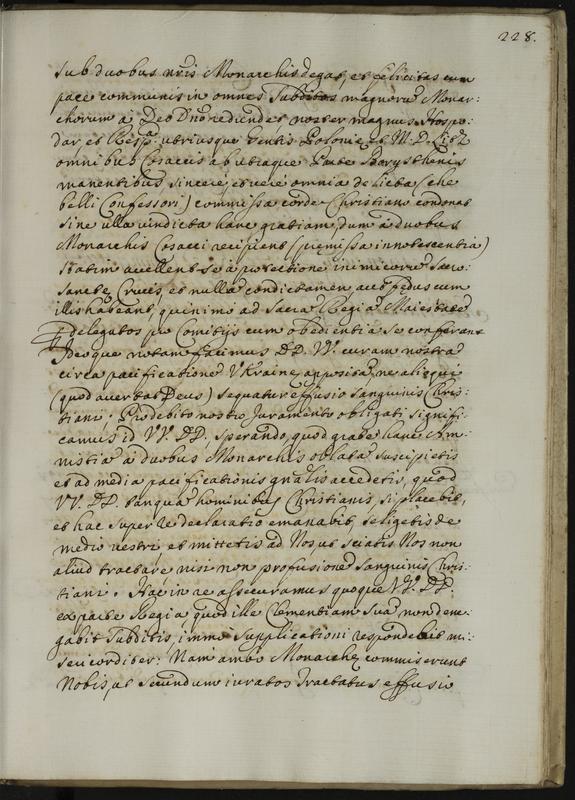 228.
sub duobus nr̃is Monarchis degat, et felicitas cum
pace communis in omnes Subditos magnoru᷉ Monar:
chorum à Deo Dno rediundet noster magnus Hospo:
dar, et Resp. utriusque Gentis Poloniæ et M. D. Lit
omnibus Cosaccis ab utraque Parte Borysthenis
manentibus sincere, et vere omnia delicta (che
belli Confessori) commissa corde Christiano condonat
sine ulla vindicta hanc gratiam, dum à duobus
Monarchis Cosacci recipient (præmissa innotescentia)
statim avellent se à protectione inimicoru᷉ Sacro:
sanctæ Crucis, et nulla᷉ condictamen aut fędus cum
illis habeant, quinimo ad Sacra᷉ Regia᷉ Maiestate᷉
delegatos pro Comitijs cum obedientia se conferant
Ideoque notam facimus DD. VV. curam nostra᷉
circa pacificatione᷉ Vkrainę apposita᷉, ne aliqui
(quod avertat Deus) sequatur effusio sanguinis Chris:
tiani. Pro debito nostro Juramento obligati signifi:
camus id VV. DD. sperando, quod grate hanc Am:
nistia᷉ à duobus Monarchis oblata᷉ suscipietis
et ad media pacificationis gn᷉alis accedetis, quod
VV. DD. tanqua᷉ hominibus Christianis, si placebit,
et hac super re declaratio emanabit, seligetis de
medio vestri, et mittetis ad Nos ut sciatis Nos non
aliud tractare nisi non profusione᷉ sanguinis Chris:
tiani. Hac in re assecuramus quoque VV. DD.
ex parte Regia quod ille Clementiam Sua᷉ non dene:
gabit Subditis, immo Supplicationi respondebit mi:
sericorditer: Nam ambo Monarchę commiserunt
Nobis, ut secundum iuratos Tractatus effusio